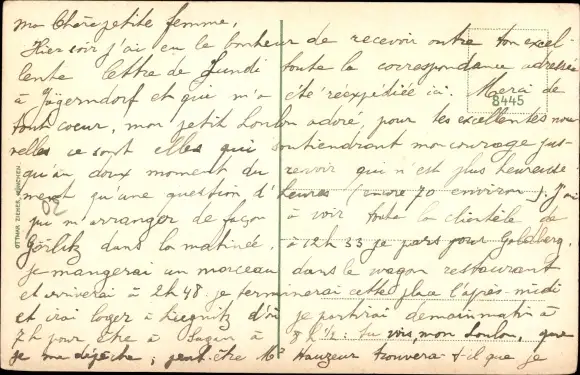 Ma Chère petite femme,
Hier soir j'ai eu le bonheur de recevoir outre ton excel-
lente lettre de Lundi toute la correspondance adressée
à Jägerndorf et qui m'a été réexpédiée ici. Merci de
tout coeur, mon petit Loulou adoré, pour tes excellentes nou-
velles ce sont elles qui soutiendront mon courage jus-
qu'au doux moment du revoir qui n'est plus heureuse-
ment qu'une question d'heures (encore 70 environ). J'ai
pu m'arranger de façon à voir toute la clientèle de
Görlitz dans la matinée. à 12h 33 je pars pour Goldberg.
je mangerai un morceau dans le wagon restaurant
et arriverai à 2h 48. je terminerai cette place l'après-midi
et irai loger à Liegnitz d'où je partirai demain matin à
7h pour être à Sagan à 8h ½. Tu vois, mon Loulou, que
je me dépêche; peut-être Mr Hauzeur trouvera-t-il que je
8445
OTTMAR ZIEHER, MÜNCHEN